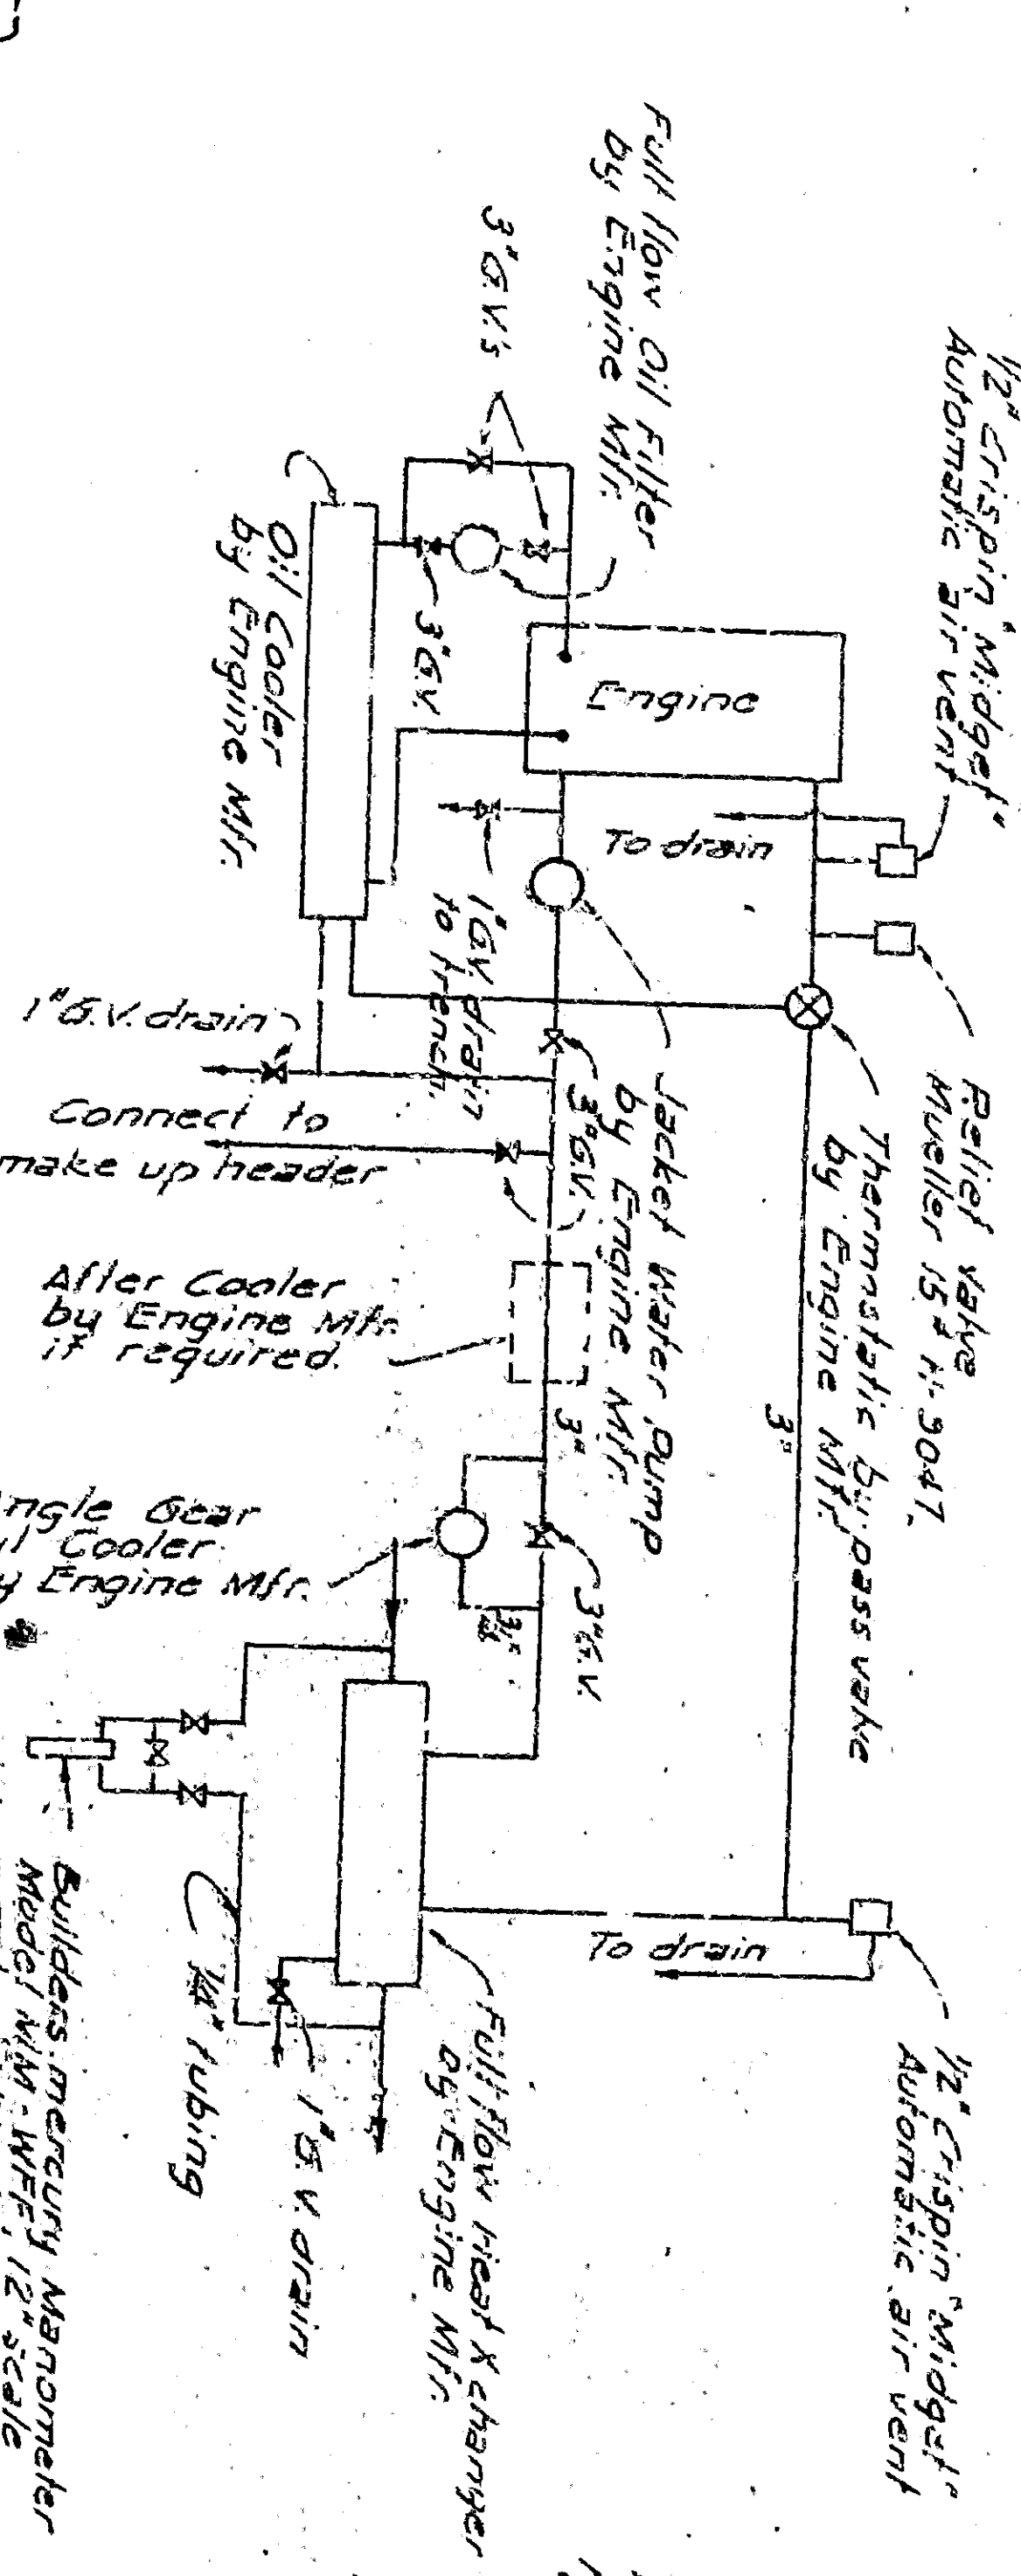 1/2" Crispin "Midget"
Automatic air vent
Full flow Oil Filter
by Engine Mfr.
3" G.V.'s
Engine
3" G.V.
Oil Cooler
by Engine Mfr.
To drain
1" G.V. drain
to trench.
Relief valve
Mueller
Thermostatic by-pass valve
by Engine Mfr.
Jacket Water Pump
by Engine Mfr.
3" G.V.
1" G.V. drain
Connect to
make up header
After Cooler
by Engine Mfr.
if required.
3"
3"
Gear
Cooler
Engine Mfr.
3" G.V.
To drain
1/2" Crispin "Midget"
Automatic air vent
Full flow Heat Xchanger
by Engine Mfr.
1" G.V. drain
1/4" tubing
Builders mercury Manometer
Model MM-WFF, 12" scale